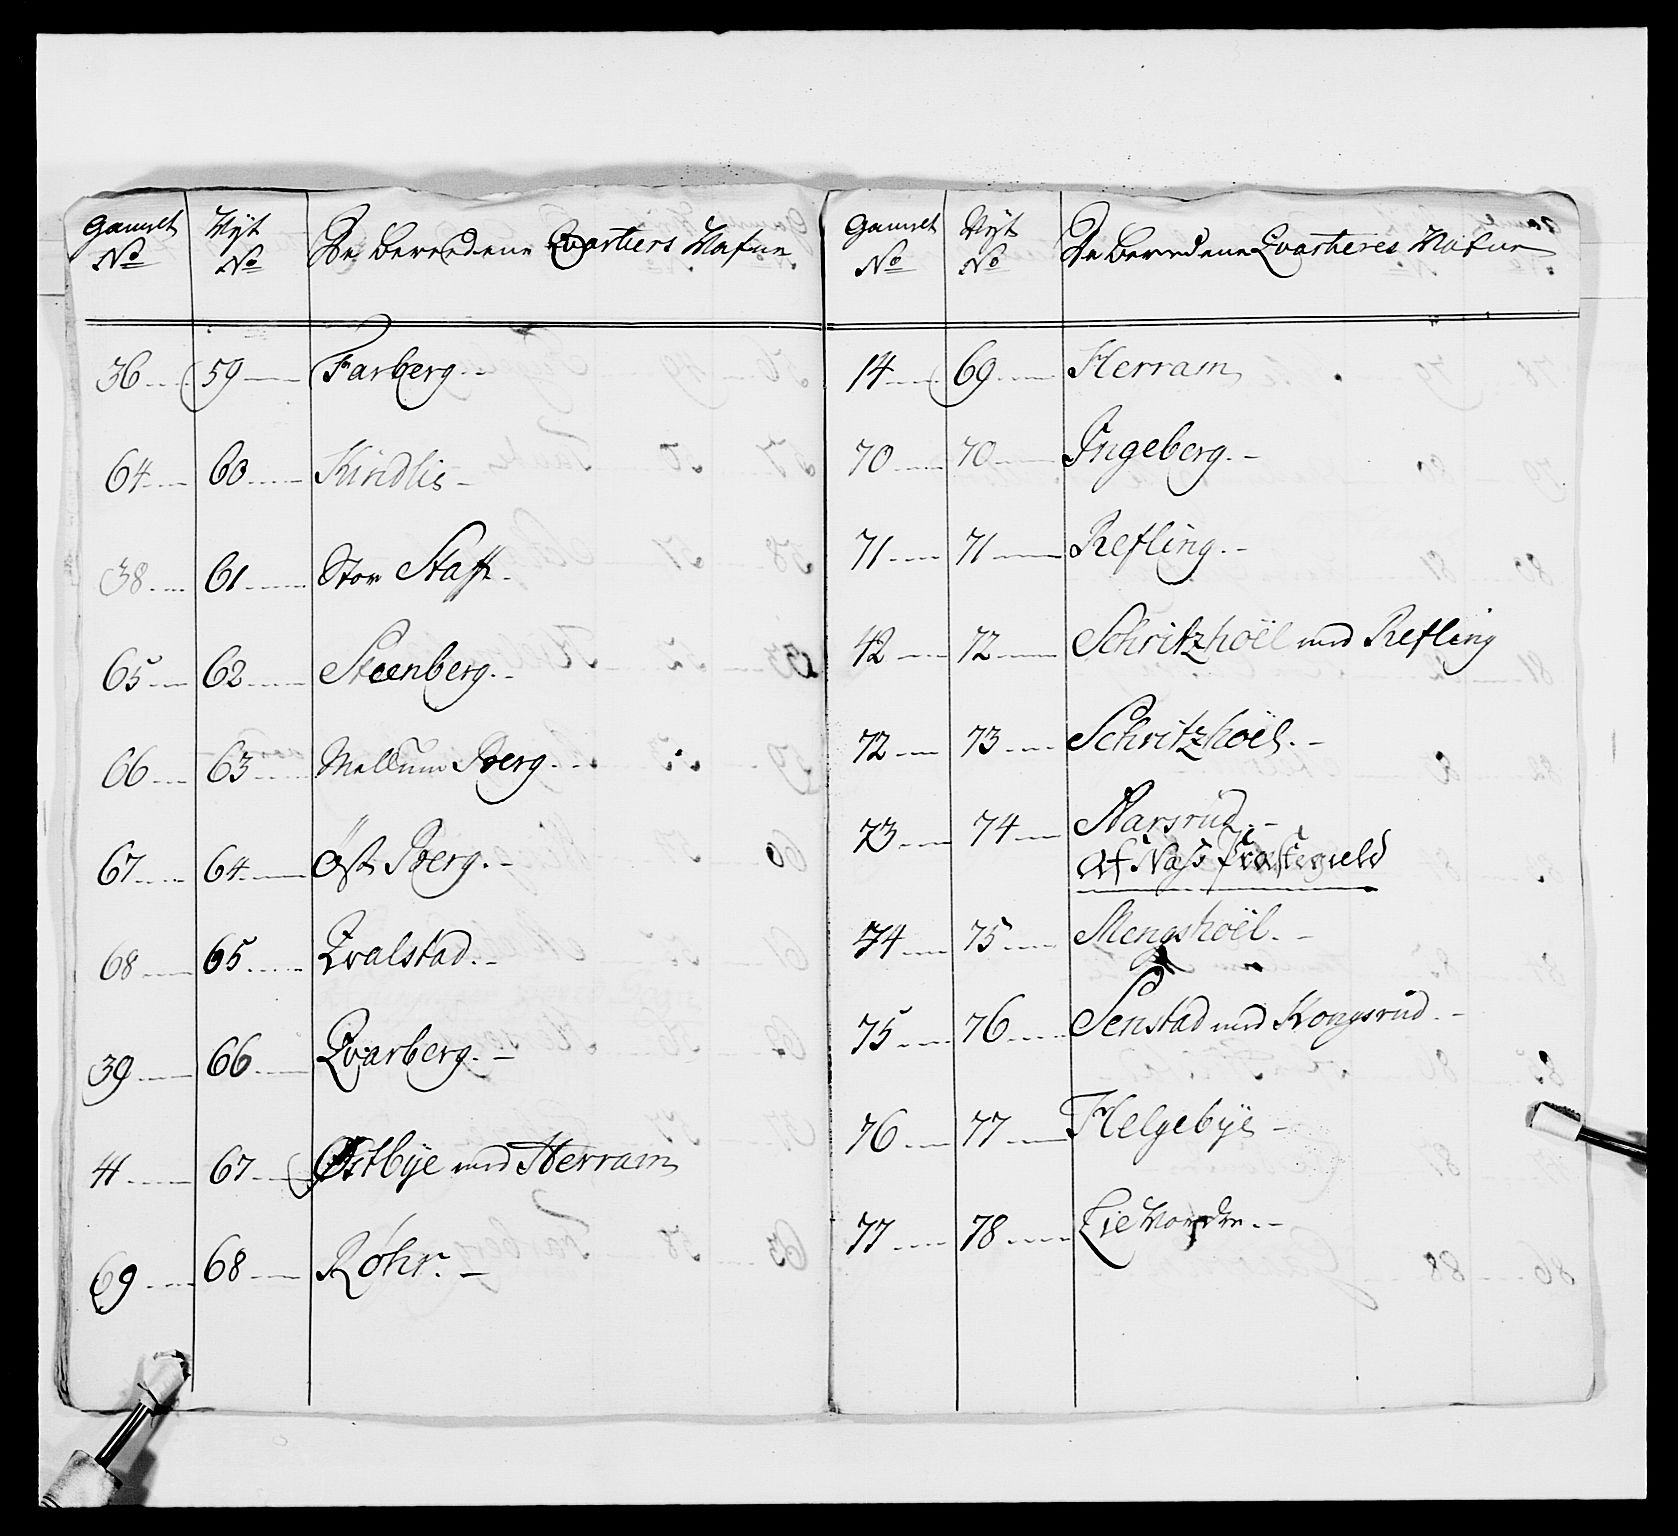 Gamelt Nyt De beredene Qvartiers Nafne
No No
36 59 Farberg.
64 60 Kindlis
38 61 Stor Staff.
65 62 Steenberg.
66 63 Mellum Berg.
67 64 Öst Berg.
68 65 Qvalstad.
39 66 Qvarberg.
41 67 Østbye med Herram
69 68 Røhr.
Gamelt Nyt De beredene Qvarteres Nafne
No No
14 69 Herram
70 70 Ingeberg.
71 71 Refling.
42 72 Schritzhoël med Refling
72 73 Schritzhoël.
73 74 Narsrud.
Af Næss Præstegield
74 75 Mengshoël.
75 76 Senstad med Kongsrud.
76 77 Helgebye
77 78 Lie Nordre.